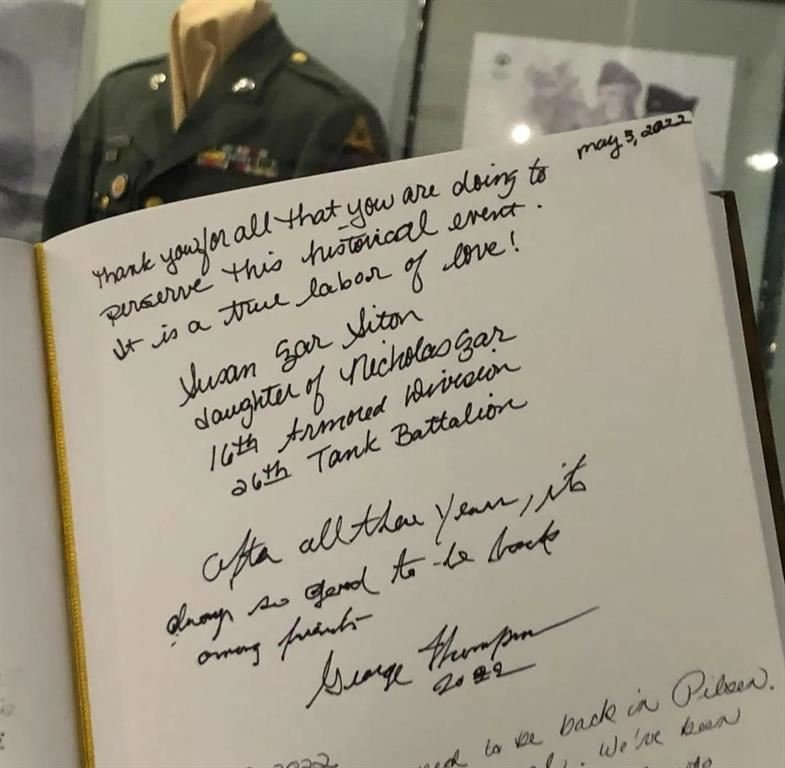 may 5, 2022
Thank you for all that you are doing to
perserve this historical event.
It is a true labor of love!
Susan Gar Siton
daughter of Nicholas Gar
16th Armored Division
26th Tank Battalion
After all these years, its
always so good to be back
among friends
George Thompson
2022
2022
to be back in Pilsen.
We've been